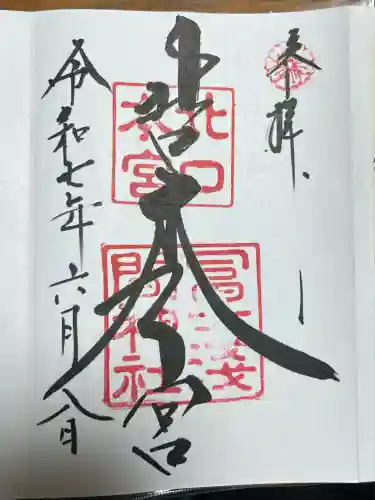 奉拝
北口本宮
北口本宮
冨士浅間神社
令和七年六月八日